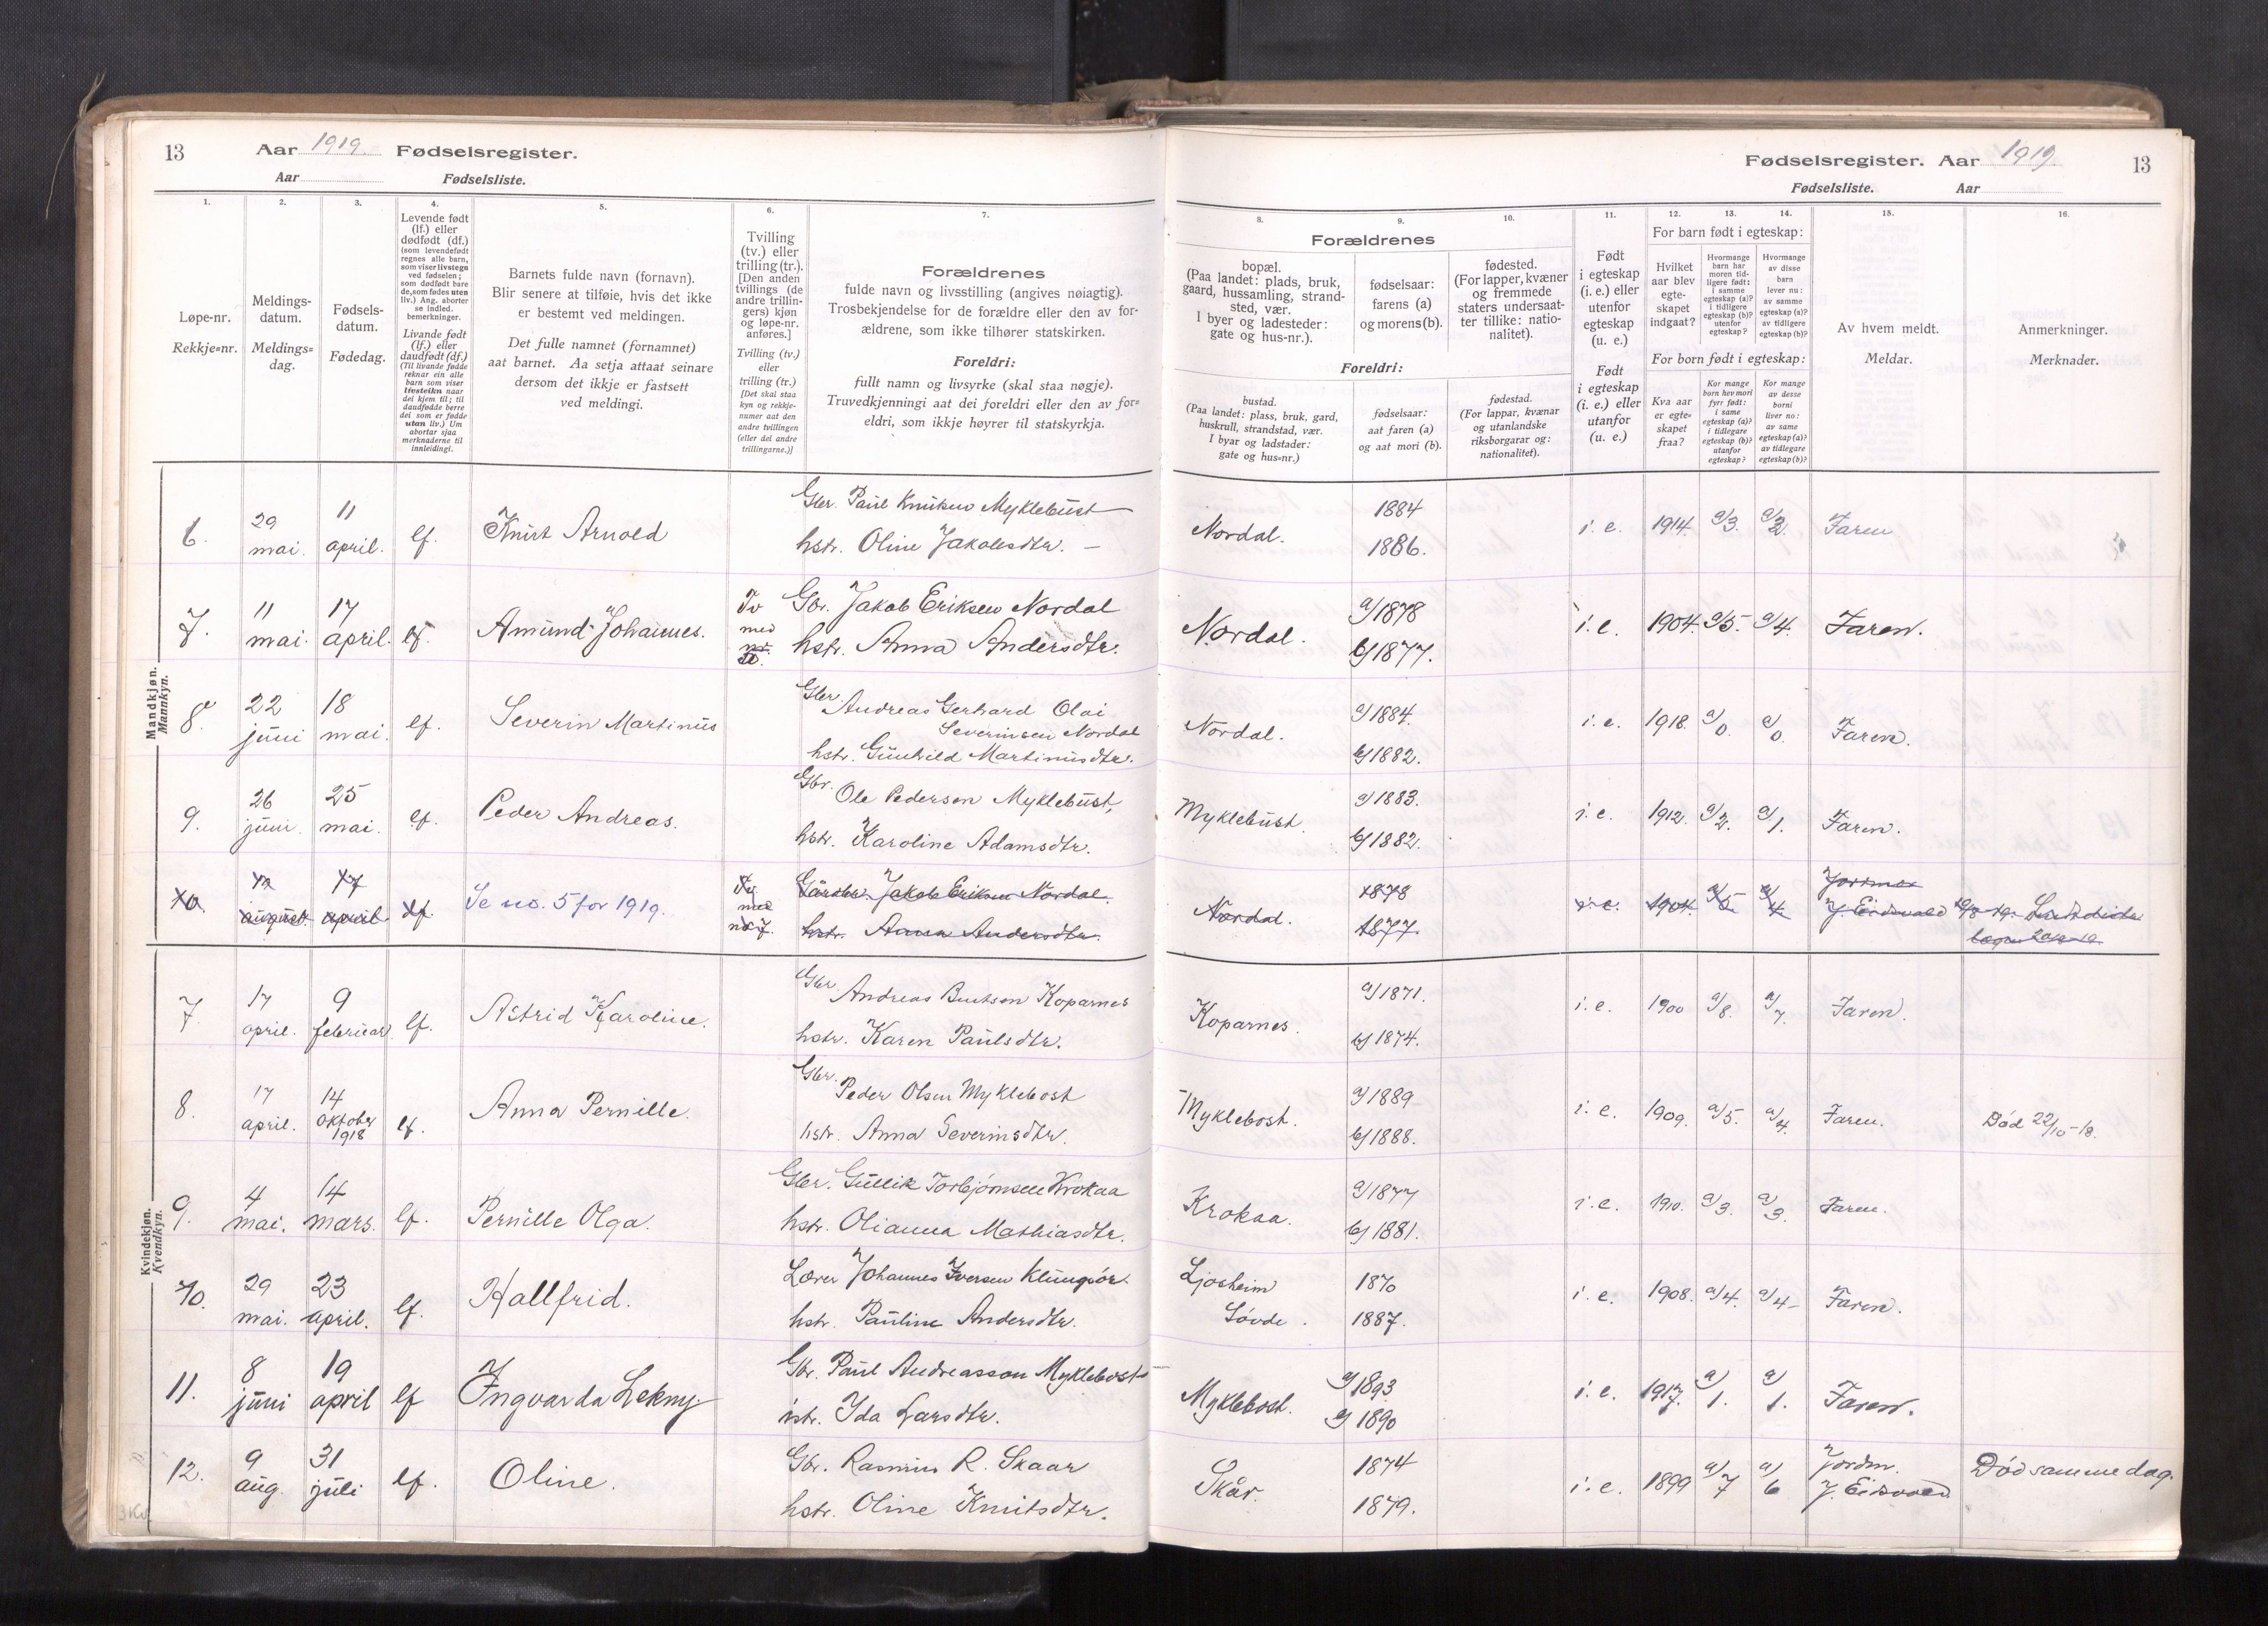 13 Aar 1919. Fødselsregister.
Aar Fødselsliste.
1. 2. 3. 4. 5. 6. 7.
Løpe-nr.
Rekkje=nr.
Meldings-
datum.
Meldings=
dag.
Fødsels-
datum.
Fødedag.
Levende født
(lf.) eller
dødfødt (df.)
(som levendefødt
regnes alle barn,
som viser livstegn
ved fødselen;
som dødfødt bare
de, som fødes uten
liv.) Ang. aborter
se indled.
bemerkninger.
Livande født
(lf.) eller
daudfødt (df.)
(Til livande fødde
reknar ein alle
barn som viser
livsteikn naar
dei kjem til; til
daudfødde berre
dei som er fødde
utan liv.) Um
abortar sjaa
merknaderne til
innleidingi.
Barnets fulde navn (fornavn).
Blir senere at tilføie, hvis det ikke
er bestemt ved meldingen.
Det fulle namnet (fornamnet)
aat barnet. Aa setja attaat seinare
dersom det ikkje er fastsett
ved meldingi.
Tvilling
(tv.) eller
trilling (tr.).
[Den anden
tvillings (de
andre trillin-
gers) kjøn
og løpe-nr.
anføres.]
Tvilling (tv.)
eller
trilling (tr.)
[Det skal staa
kyn og rekkje-
numer aat den
andre tvillingen
(eller dei andre
trillingarne.)]
Forældrenes
fulde navn og livsstilling (angives nøiagtig).
Trosbekjendelse for de forældre eller den av for-
ældrene, som ikke tilhører statskirken.
Foreldri:
fullt namn og livsyrke (skal staa nøgje).
Truvedkjenningi aat dei foreldri eller den av for=
eldri, som ikkje høyrer til statskyrkja.
Mandkjøn.
Mannkyn.
6. 29 mai. 11 april. lf. Knut Arnold
Gbr. Paul Knutsen Myklebust
hstr. Oline Jakobsdtr. —
7. 11 mai. 17 april. lf. Amund Johannes. Tv med nr.
Gbr. Jakob Eriksen Nordal
hstr. Anna Andersdtr.
8. 22 juni 18 mai. lf. Severin Martinus
Gbr. Andreas Gerhard Olai
Severinsen Nordal
hstr. Gunhild Martinusdtr.
9. 26 juni. 25 mai. lf. Peder Andreas.
Gbr. Ole Pedersen Myklebust,
hstr. Karoline Adamsdtr.
10. 12 august 17 april lf. Se no. 5 for 1919. Tv. med nr 7.
Gårdbr. Jakob Eriksen Nordal.
hstr. Anna Andersdtr.
Kvindekjøn.
Kvendkyn.
7. 17 april. 9 februar lf. Astrid Karoline.
Gbr. Andreas Bentsen Koparnes
hstr. Karen Paulsdtr.
8. 17 april. 14 oktober 1918 lf. Anna Pernille.
Gbr. Peder Olsen Myklebost
hstr. Anna Severinsdtr.
9. 4 mai. 14 mars. lf. Pernille Olga.
Gbr. Gullik Torbjörnsen Krokaa
hstr. Olianna Mathiasdtr.
10. 29 mai. 23 april. lf. Hallfrid.
Lærer Johannes Iversen Klungsör.
hstr. Pauline Andersdtr.
11. 8 juni 19 april lf Ingvarda Lekny.
Gbr. Paul Andreasson Myklebost
hstr. Ida Larsdtr.
12. 9 aug. 31 juli lf. Oline.
Gbr. Rasmus R. Skaar
hstr. Oline Knutsdtr.
Fødselsregister. Aar 1919. 13
Fødselsliste. Aar
8. 9. 10. 11. 12. 13. 14. 15. 16.
Forældrenes
bopæl.
(Paa landet: plads, bruk,
gaard, hussamling, strand-
sted, vær.
I byer og ladesteder:
gate og hus-nr.).
fødselsaar:
farens (a)
og morens (b).
fødested.
(For lapper, kvæner
og fremmede
staters undersaat-
ter tillike: natio-
nalitet).
Foreldri:
bustad.
(Paa landet: plass, bruk, gard,
huskrull, strandstad, vær.
I byar og ladstader:
gate og hus=nr.)
fødselsaar:
aat faren (a)
og aat mori (b).
fødestad.
(For lappar, kvænar
og utanlandske
riksborgarar og:
nationalitet).
Født
i egteskap
(i. e.) eller
utenfor
egteskap
(u. e.)
Født
i egteskap
(i. e.) eller
utanfor
(u. e.)
For barn født i egteskap:
Hvilket
aar blev
egte-
skapet
indgaat?
Hvormange
barn har
moren tid-
ligere født:
i samme
egteskap (a)?
i tidligere
egteskap (b)?
utenfor
egteskap?
Hvormange
av disse
barn
lever nu:
av samme
egteskap (a)?
av tidligere
egteskap (b)?
For born født i egteskap:
Kva aar
er egte=
skapet
fraa?
Kor mange
born hev mori
fyrr født:
i same
egteskap (a)?
i tidlegare
egteskap (b)?
utanfor
egteskap?
Kor mange
av desse
borni
liver no:
av same
egteskap (a)?
av tidlegare
egteskap (b)?
Av hvem meldt.
Meldar.
Anmerkninger.
Merknader.
Nordal. 1884 1886. i. e. 1914. a/3. a/2. Faren
Nordal. a/1878 b/1877. i. e. 1904. a/5. a/4. Faren.
Nordal. a/1884. b/1882. i. e. 1918. a/0. a/0. Faren.
Myklebust. a/1883. b/1882. i. e. 1912. a/2. a/1. Faren.
Nordal. 1878 1877. i. e. 1904. a/5. a/4. Jordmor J. Eidsvold
Koparnes. a/1871. b/1874. i. e. 1900 a/8. a/7. Faren.
Myklebost. a/1889 b/1888. i. e. 1909. a/5. a/4. Faren. Död 22/10-18.
Krokaa. a/1877 b/1881. i. e. 1910. a/3. a/3. Faren.
Ljosheim Sövde. 1870 1887. i. e. 1908. a/4. a/4 Faren.
Myklebost. a/1893 a/1890 i. e. 1917. a/1. a/1. Faren.
Skår. 1874 1879. i. e. 1899 a/7 a/6 Jordm. J. Eidsvold Död samme dag.